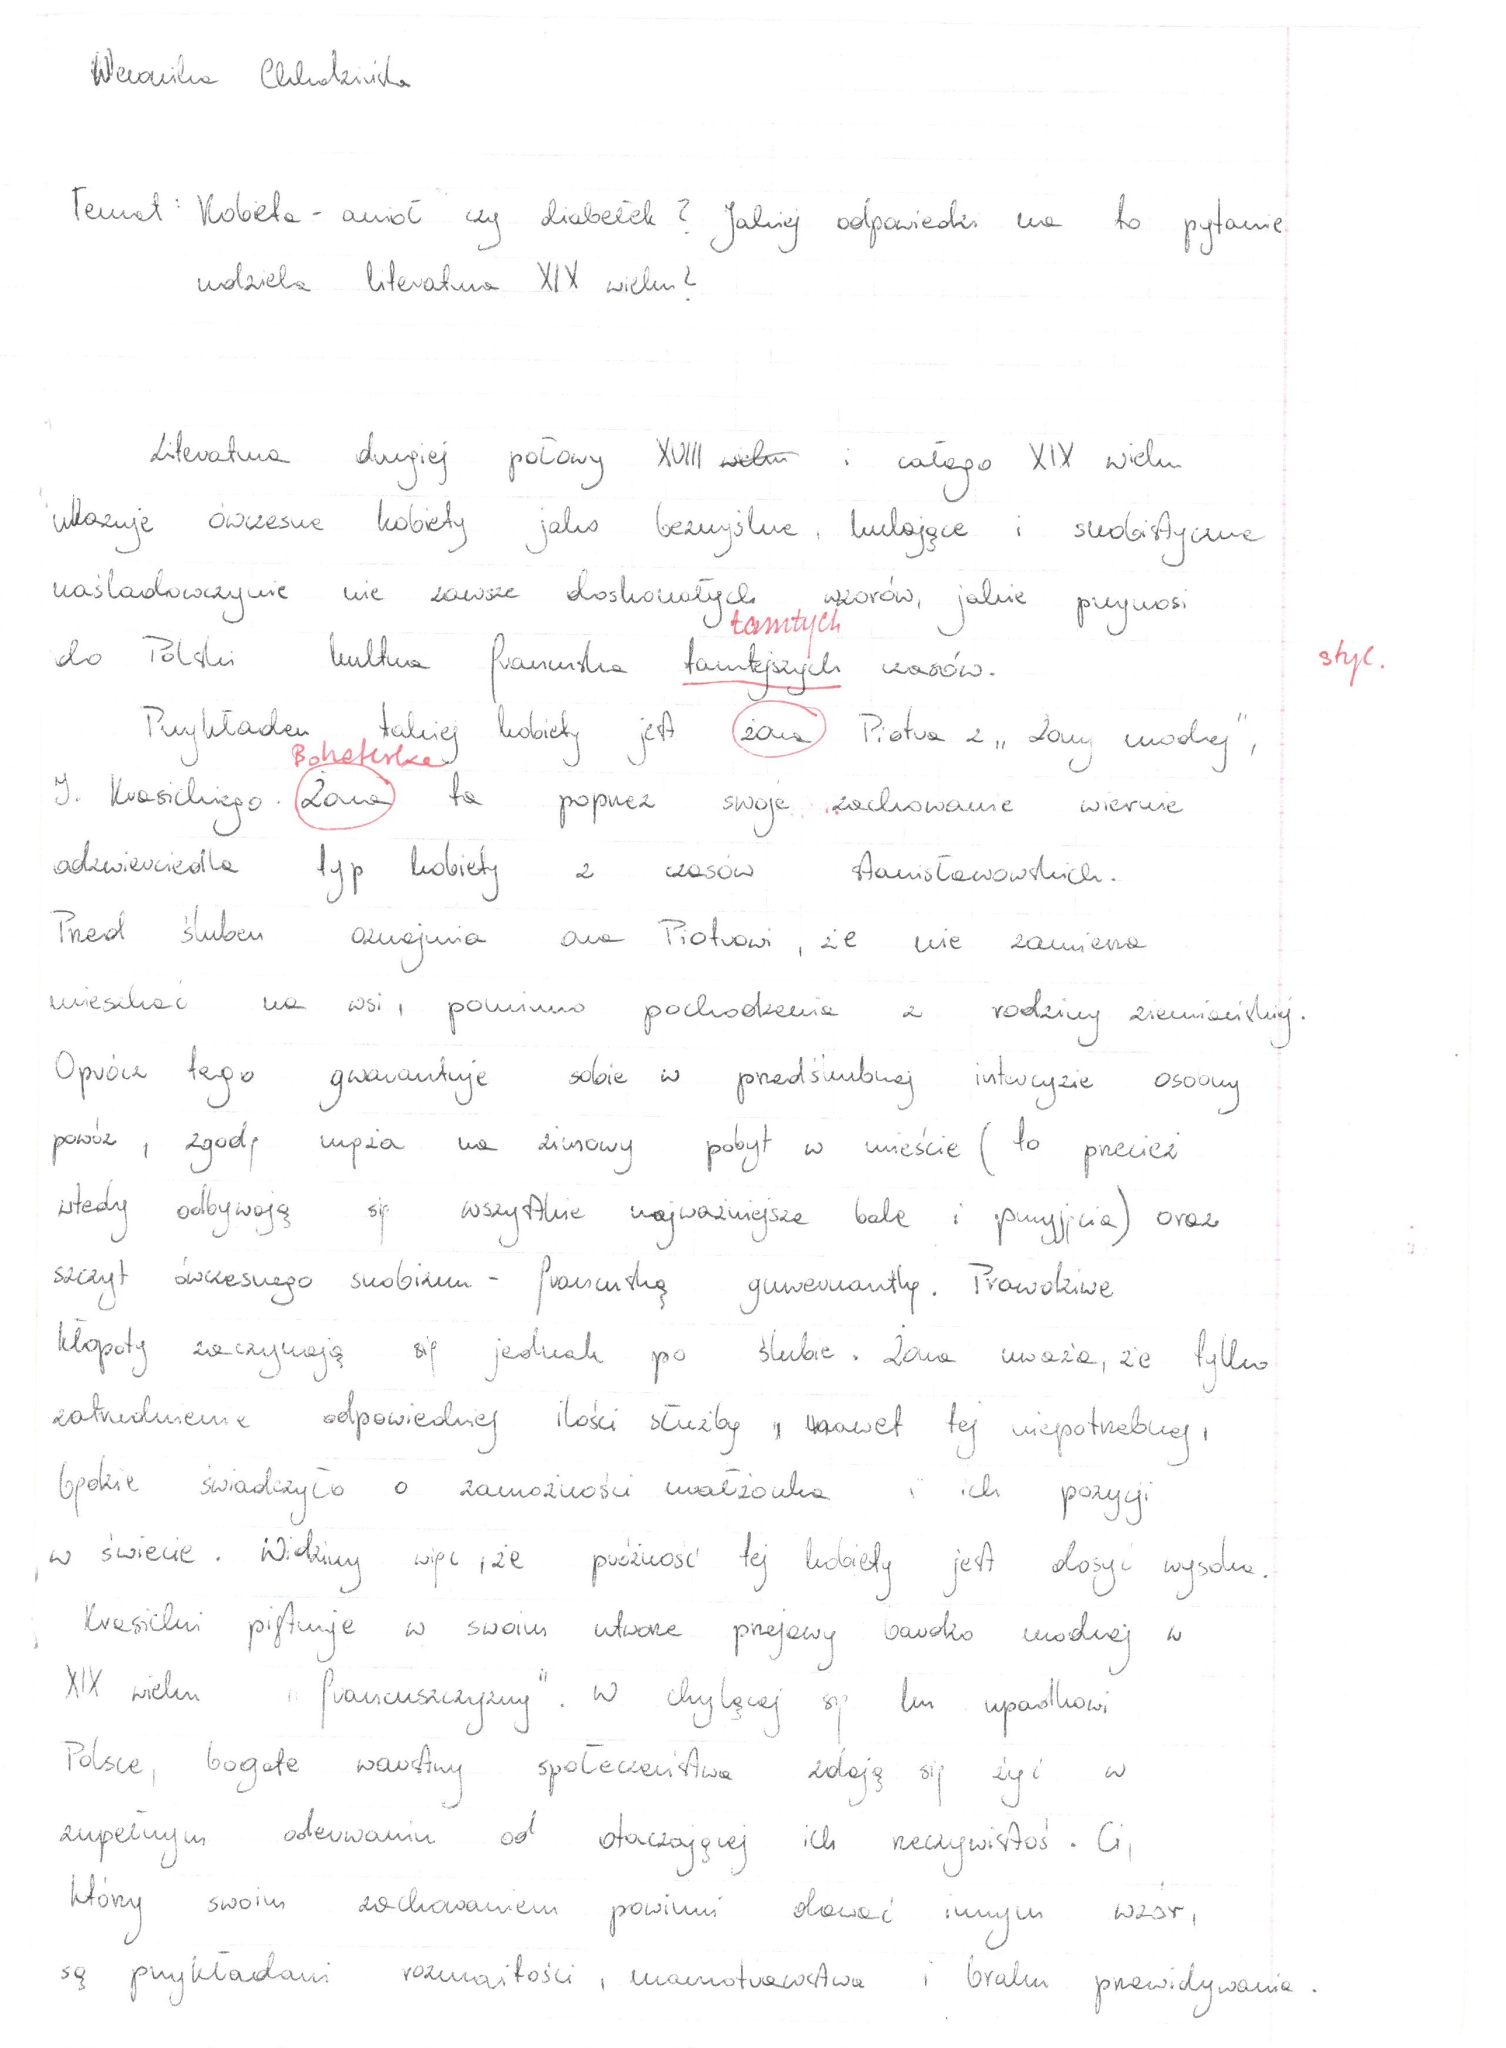 Weronika Chludzińska
Temat: Kobieta - anioł czy diabełek? Jakiej odpowiedzi na to pytanie
udziela literatura XIX wieku?
Literatura drugiej połowy XVIII wieku i całego XIX wieku
ukazuje ówczesne kobiety jako bezmyślne, hulające i snobistyczne
naśladowczynie nie zawsze doskonałych wzorów, jakie przynosi
tamtych
do Polski kultura francuska tamtejszych czasów. styl.
Przykładem takiej kobiety jest żona Piotra z „Żony modnej”,
Bohaterka
I. Krasickiego. Żona ta poprzez swoje zachowanie wiernie
odzwierciedla typ kobiety z czasów stanisławowskich.
Przed ślubem oznajmia ona Piotrowi, że nie zamierza
mieszkać na wsi, pomimo pochodzenia z rodziny ziemiańskiej.
Oprócz tego gwarantuje sobie w przedślubnej intercyzie osobny
powóz, zgodę męża na zimowy pobyt w mieście (to przecież
wtedy odbywają się wszystkie najważniejsze bale i przyjęcia) oraz
szczyt ówczesnego snobizmu - francuską guwernantkę. Prawdziwe
kłopoty zaczynają się jednak po ślubie. Żona uważa, że tylko
zatrudnienie odpowiedniej ilości służby, nawet tej niepotrzebnej,
będzie świadczyło o zamożności małżonka i ich pozycji
w świecie. Widzimy więc, że próżność tej kobiety jest dosyć wysoka.
Krasicki piętnuje w swoim utworze przejawy bardzo modnej w
XIX wieku „francuszczyzny”. W chylącej się ku upadkowi
Polsce, bogate warstwy społeczeństwa zdają się żyć w
zupełnym oderwaniu od otaczającej ich rzeczywistoś. Ci,
którzy swoim zachowaniem powinni dawać innym wzór,
są przykładami rozmaitości, marnotrawstwa i braku przewidywania.